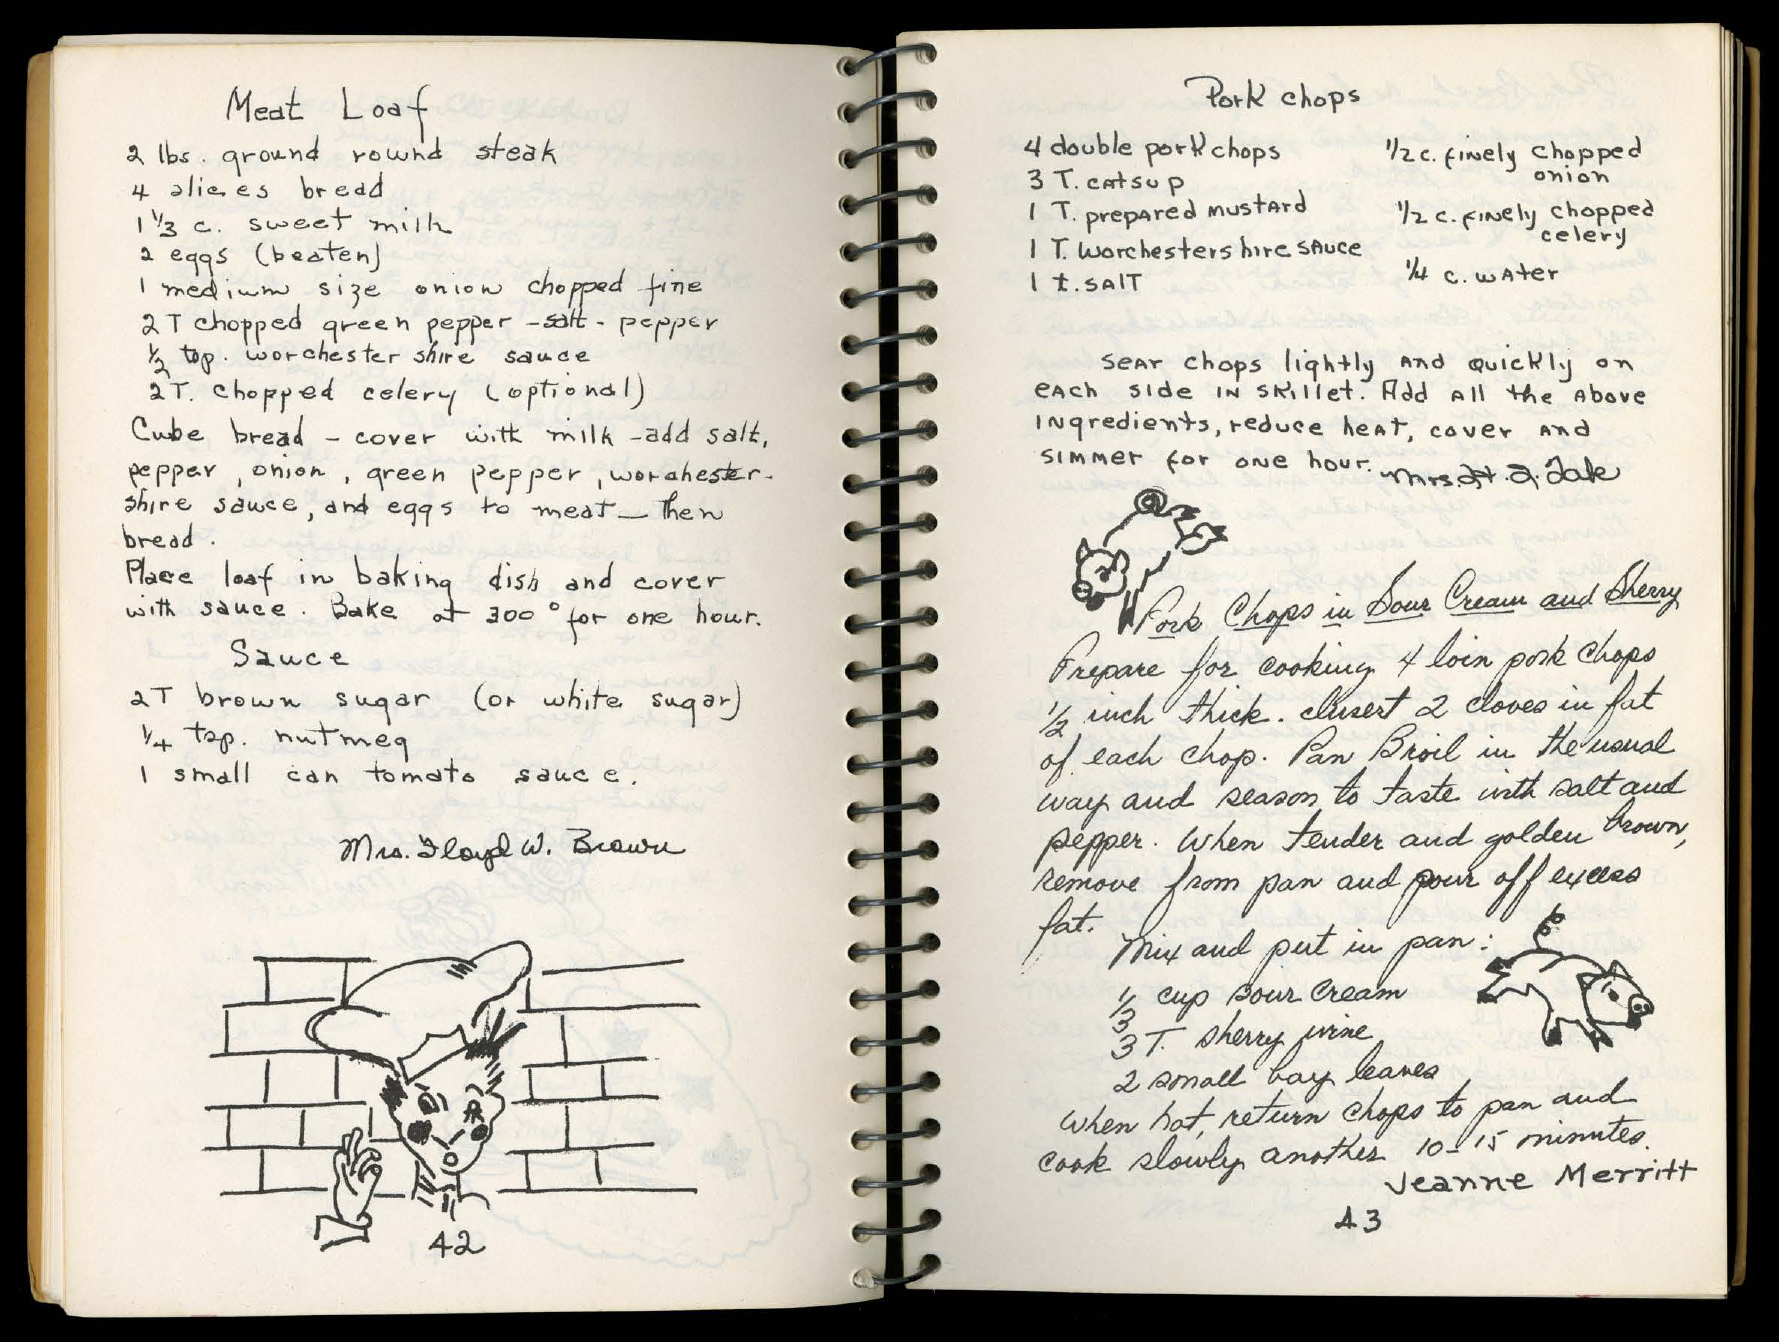 Meat Loaf
2 lbs. ground round steak
4 slices bread
1 1/3 c. sweet milk
2 eggs (beaten)
1 medium size onion chopped fine
2 T chopped green pepper - salt - pepper
1/2 tsp. worchester shire sauce
2 T. chopped celery (optional)
Cube bread - cover with milk - add salt,
pepper, onion, green pepper, worchester-
shire sauce, and eggs to meat - then
bread.
Place loaf in baking dish and cover
with sauce. Bake at 300° for one hour.
Sauce
2 T brown sugar (or white sugar)
1/4 tsp. nutmeg
1 small can tomato sauce.
Mrs. Floyd W. Brown
42
Pork chops
4 double pork chops
3 T. catsup
1 T. prepared mustard
1 T. Worchestershire sauce
1 t. salt
1/2 c. finely chopped
onion
1/2 c. finely chopped
celery
1/4 c. water
Sear chops lightly and quickly on
each side in skillet. Add all the above
ingredients, reduce heat, cover and
simmer for one hour.
Mrs.
Pork Chops in Sour Cream and Sherry
Prepare for cooking 4 loin pork chops
1/2 inch thick. Insert 2 cloves in fat
of each chop. Pan Broil in the usual
way and season to taste with salt and
pepper. When tender and golden brown,
remove from pan and pour off excess
fat.
Mix and put in pan:
1/3 cup sour cream
3 T. sherry wine
2 small bay leaves
When hot, return chops to pan and
cook slowly another 10-15 minutes.
Jeanne Merritt
43